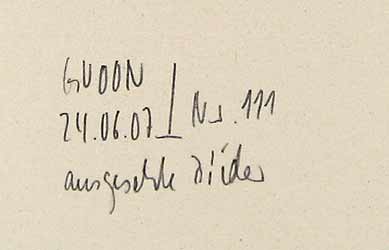 GUDON
24.06.07 Nr. 111
ausgesetzte